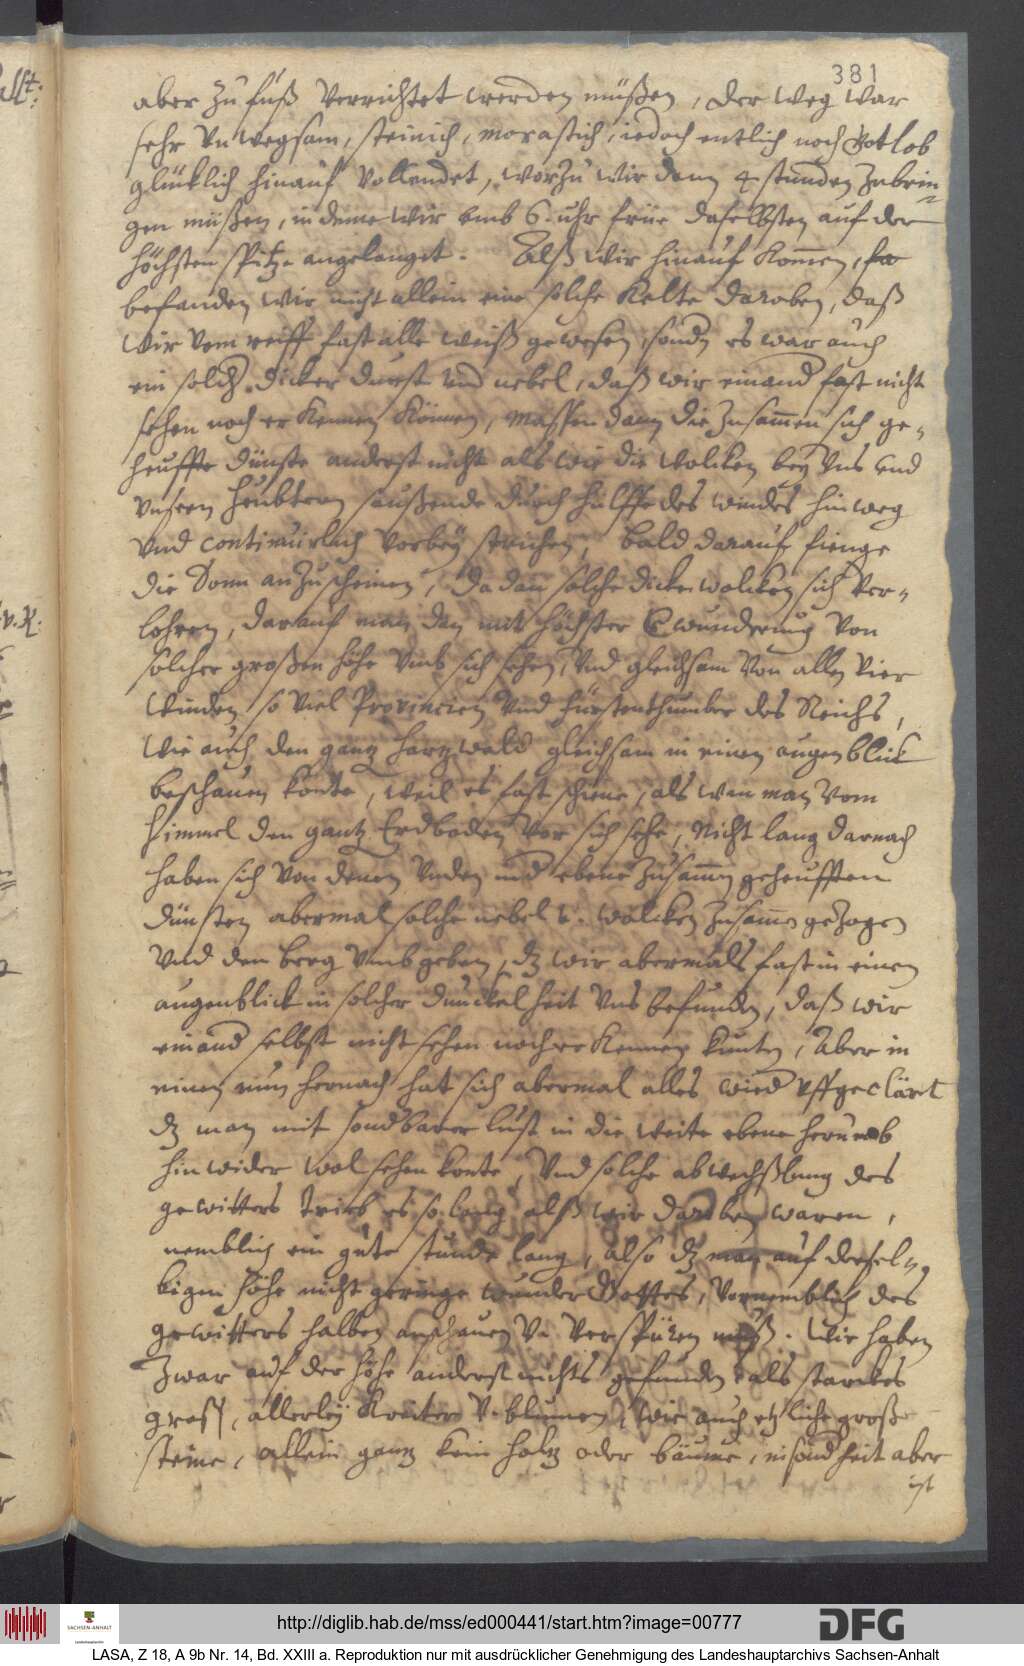 381
aber zu fuß verrichtet werden müßen, der weg war
sehr unwegsam, steinich, morastich, iedoch entlich noch Gotlob
glücklich hinauf vollendet, worzu wir dann 4 stunden zubrin=
gen müßen, in deme wir umb 6. uhr früe daselbsten auf der
höchsten spitze angelanget. Alß wir hinauf kommen,
befanden wir nicht allein eine solche Kelte daroben, daß
wir vom reiff fast alle weiß gewesen, sondn es war auch
ein solch dicker dunst und nebel, daß wir einand fast nicht
sehen noch erkennen können, massen dann die zusammen sich ge=
heuffte dünste anderst nicht als wie die wolcken bey uns und
unsern heubtern saußende durch hülffe des windes hinweg
und continuirlich vorbey strichen, bald darauf fienge
die Sonn an zu scheinen, da dan solche dicke wolcken sich ver=
lohren, darauf man dan mit höchster Verwunderung von
solcher großen höhe umb sich sehen, und gleichsam von allen vier
winden so viel Provincien und fürstenthumber des Reichs,
wie auch den gantz hartzwald gleichsam in einen augenblick
beschauen konte, weil es fast schiene, als wan man vom
himmel den gantz Erdboden vor sich sehe, Nicht lang darnach
haben sich von denen unden und ebene zusammen geheufften
dünsten abermal solche nebel u. wolcken zusammen gezogen
und den berg umbgeben, dz wir abermals fast in einen
augenblick in solcher dunckelheit uns befunden, daß wir
einand selbst nicht sehen noch erkennen kunten, Aber in
einen nun hernach hat sich abermal alles wied uffgeclärt
dz man mit sondbarer lust in die weite ebene herumb
hinwider wol sehen konte, Und solche abwechßlung des
gewitters trieb es so lang alß wir daroben waren,
nemblich ein gute stunde lang, also dz man auf dersel=
bigen höhe nicht geringe wunder Gottes, vornemblich des
gewitters halben anschauen u. verspüren muß. Wir haben
zwar auf der höhe anderst nichts gefunden als starckes
graß, allerley Kreüter u. blumen, wie auch etzliche große
steine, allein gantz kein holtz oder bäume, insondheit aber
ist
http://diglib.hab.de/mss/ed000441/start.htm?image=00777
SACHSEN-ANHALT
DFG
LASA, Z 18, A 9b Nr. 14, Bd. XXIII a. Reproduktion nur mit ausdrücklicher Genehmigung des Landeshauptarchivs Sachsen-Anhalt